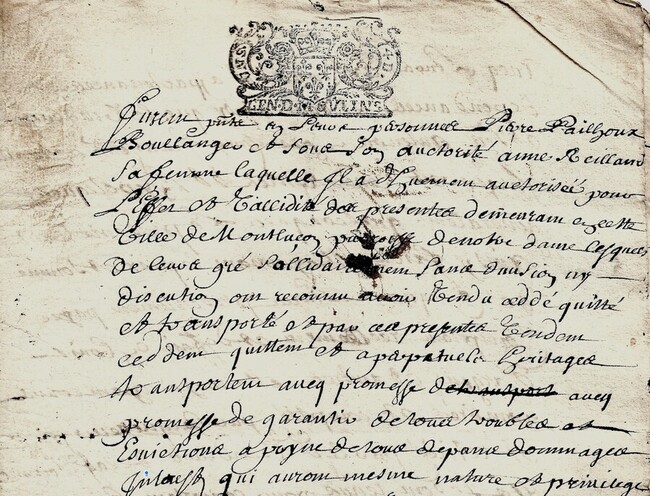 GEN.DE MOULINS
furent pnts en leurs personnes Pierre Pailhoux
Boullanger et soubs son auctorité anne Reilland
sa femme laquelle il a duement auctorisée pour
l'effet et vallidité des presentes demeurant en cette
ville de Montlucon paroisse de notre dame lesquels
de leurs gré sollidairement sans division ny
discution ont reconnu avoir vendu ceddé quitté
et transporté et par ces presentes vendent
ceddent quittent et a perpetuels heritages
transportent avecq promesse de transport avecq
promesse de garantir de tous troubles et
Evictions a peyne de tous depans dommages
Interests qui auront mesme nature et privilege